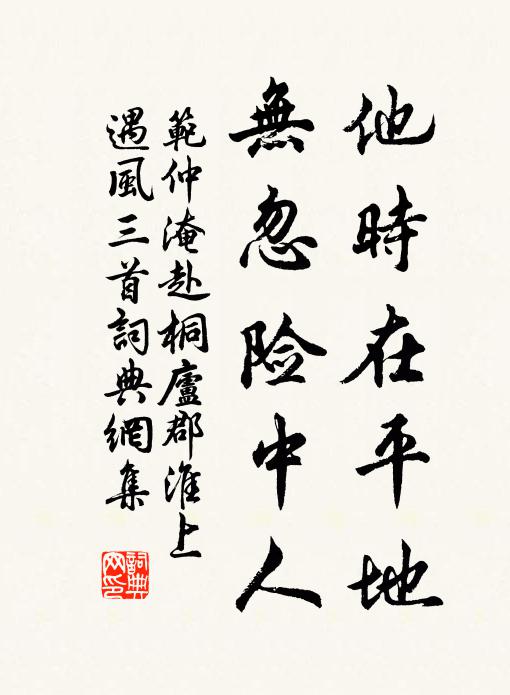 他時在平地
無忽险中人
範仲淹赴桐廬郡淮上
遇風三首詞典網集
詞典
网印